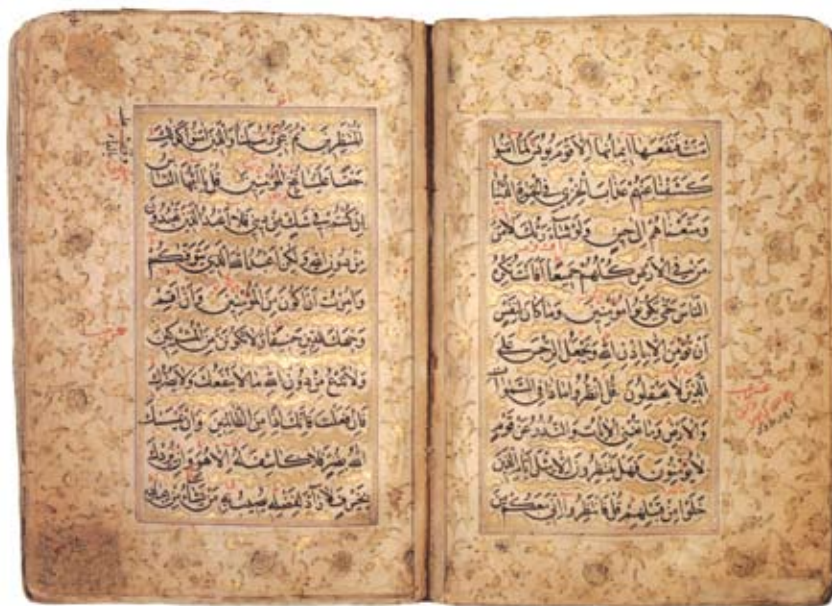 امنت فنفعها ايمانها الا قوم يونس لما امنوا
كشفنا عنهم عذاب الخزي في الحيوة الدنيا
ومتعناهم الى حين ولو شاء ربك لامن
من في الارض كلهم جميعا افانت تكره
الناس حتى يكونوا مؤمنين وما كان لنفس
ان تؤمن الا باذن الله ويجعل الرجس على
الذين لا يعقلون قل انظروا ماذا في السموات
والارض وما تغني الايات والنذر عن قوم
لا يؤمنون فهل ينتظرون الا مثل ايام الذين
خلوا من قبلهم قل فانتظروا اني معكم من
المنتظرين ثم ننجي رسلنا والذين امنوا كذلك
حقا علينا ننج المؤمنين قل يا ايها الناس
ان كنتم في شك من ديني فلا اعبد الذين تعبدون
من دون الله ولكن اعبد الله الذي يتوفيكم
وامرت ان اكون من المؤمنين وان اقم
وجهك للدين حنيفا ولا تكونن من المشركين
ولا تدع من دون الله ما لا ينفعك ولا يضرك
فان فعلت فانك اذا من الظالمين وان يمسسك
الله بضر فلا كاشف له الا هو وان يردك
بخير فلا راد لفضله يصيب به من يشاء من عباده